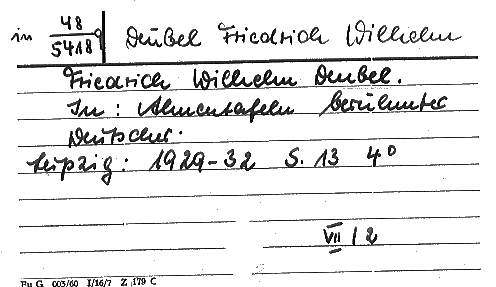 in 48/5418 Deubel Friedrich Wilhelm
Friedrich Wilhelm Deubel.
In: Ahnentafeln berühmter
Deutscher.
Leipzig: 1929-32 S. 13 4°
VII / 2
Fu G 003/60 I/16/7 Z 179 C